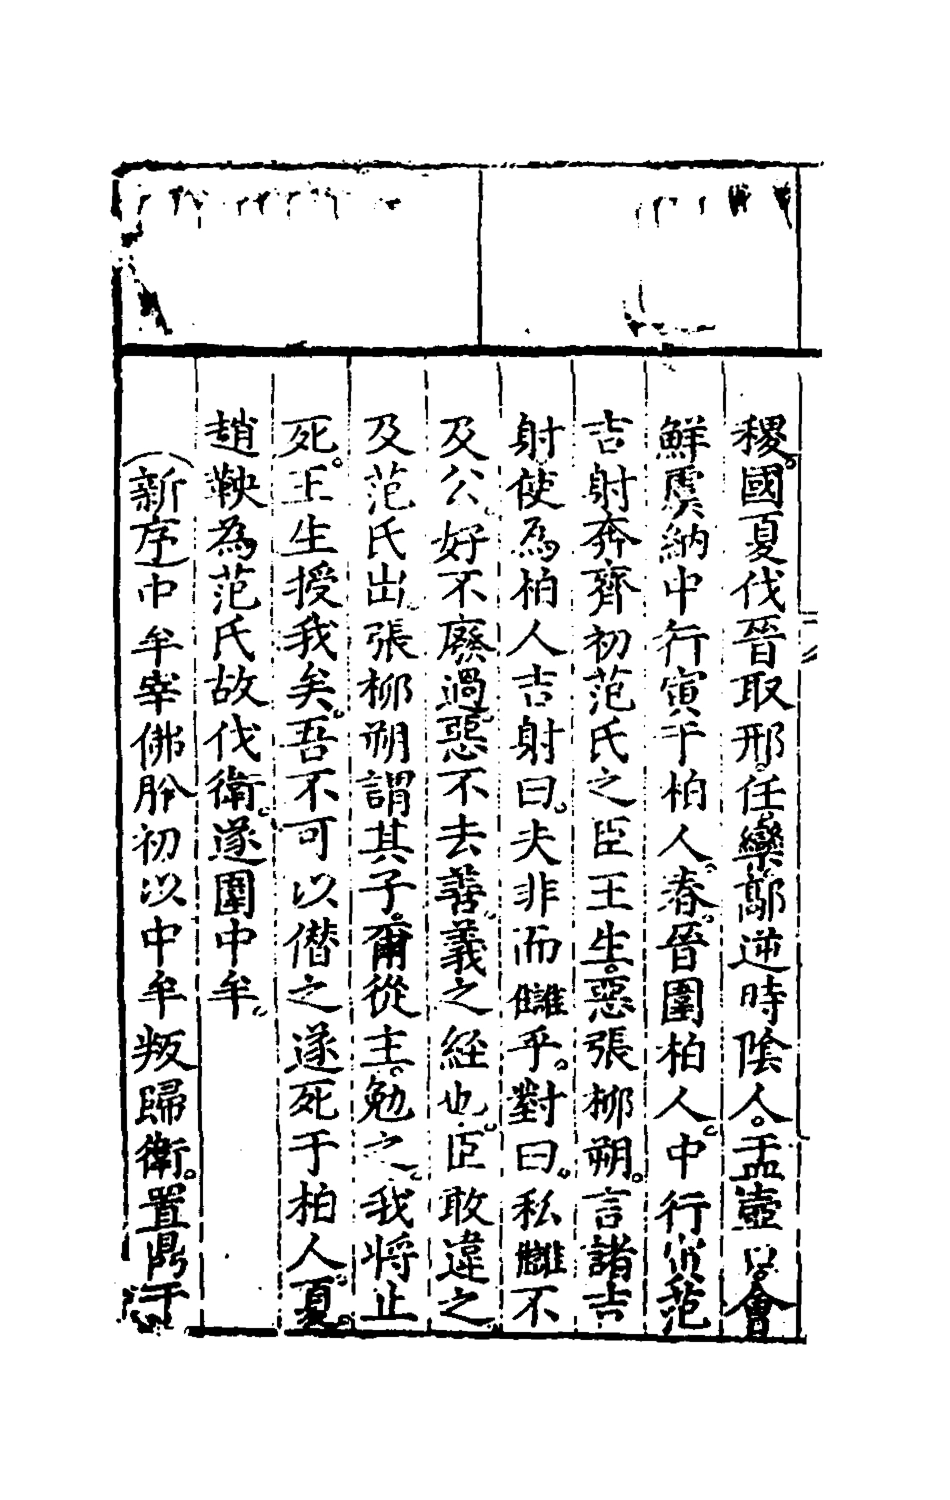 稷。國夏伐晉取邢。任欒鄗逆畤陰人。盂壺口。會
鮮虞納中行寅于柏人。春。晉圍柏人。中行寅范
吉射奔齊初范氏之臣王生。惡張柳朔。言諸吉
射使為柏人吉射曰。夫非而讎乎。對曰。私讎不
及公。好不廢過。惡不去善。義之經也。臣敢違之
及范氏出。張柳朔謂其子。爾從主。勉之。我將止
死。王生授我矣。吾不可以僭之遂死于柏人。夏。
趙鞅為范氏故伐衛。遂圍中牟。
(新序)中牟宰佛肸初以中牟叛歸衛。置鼎于